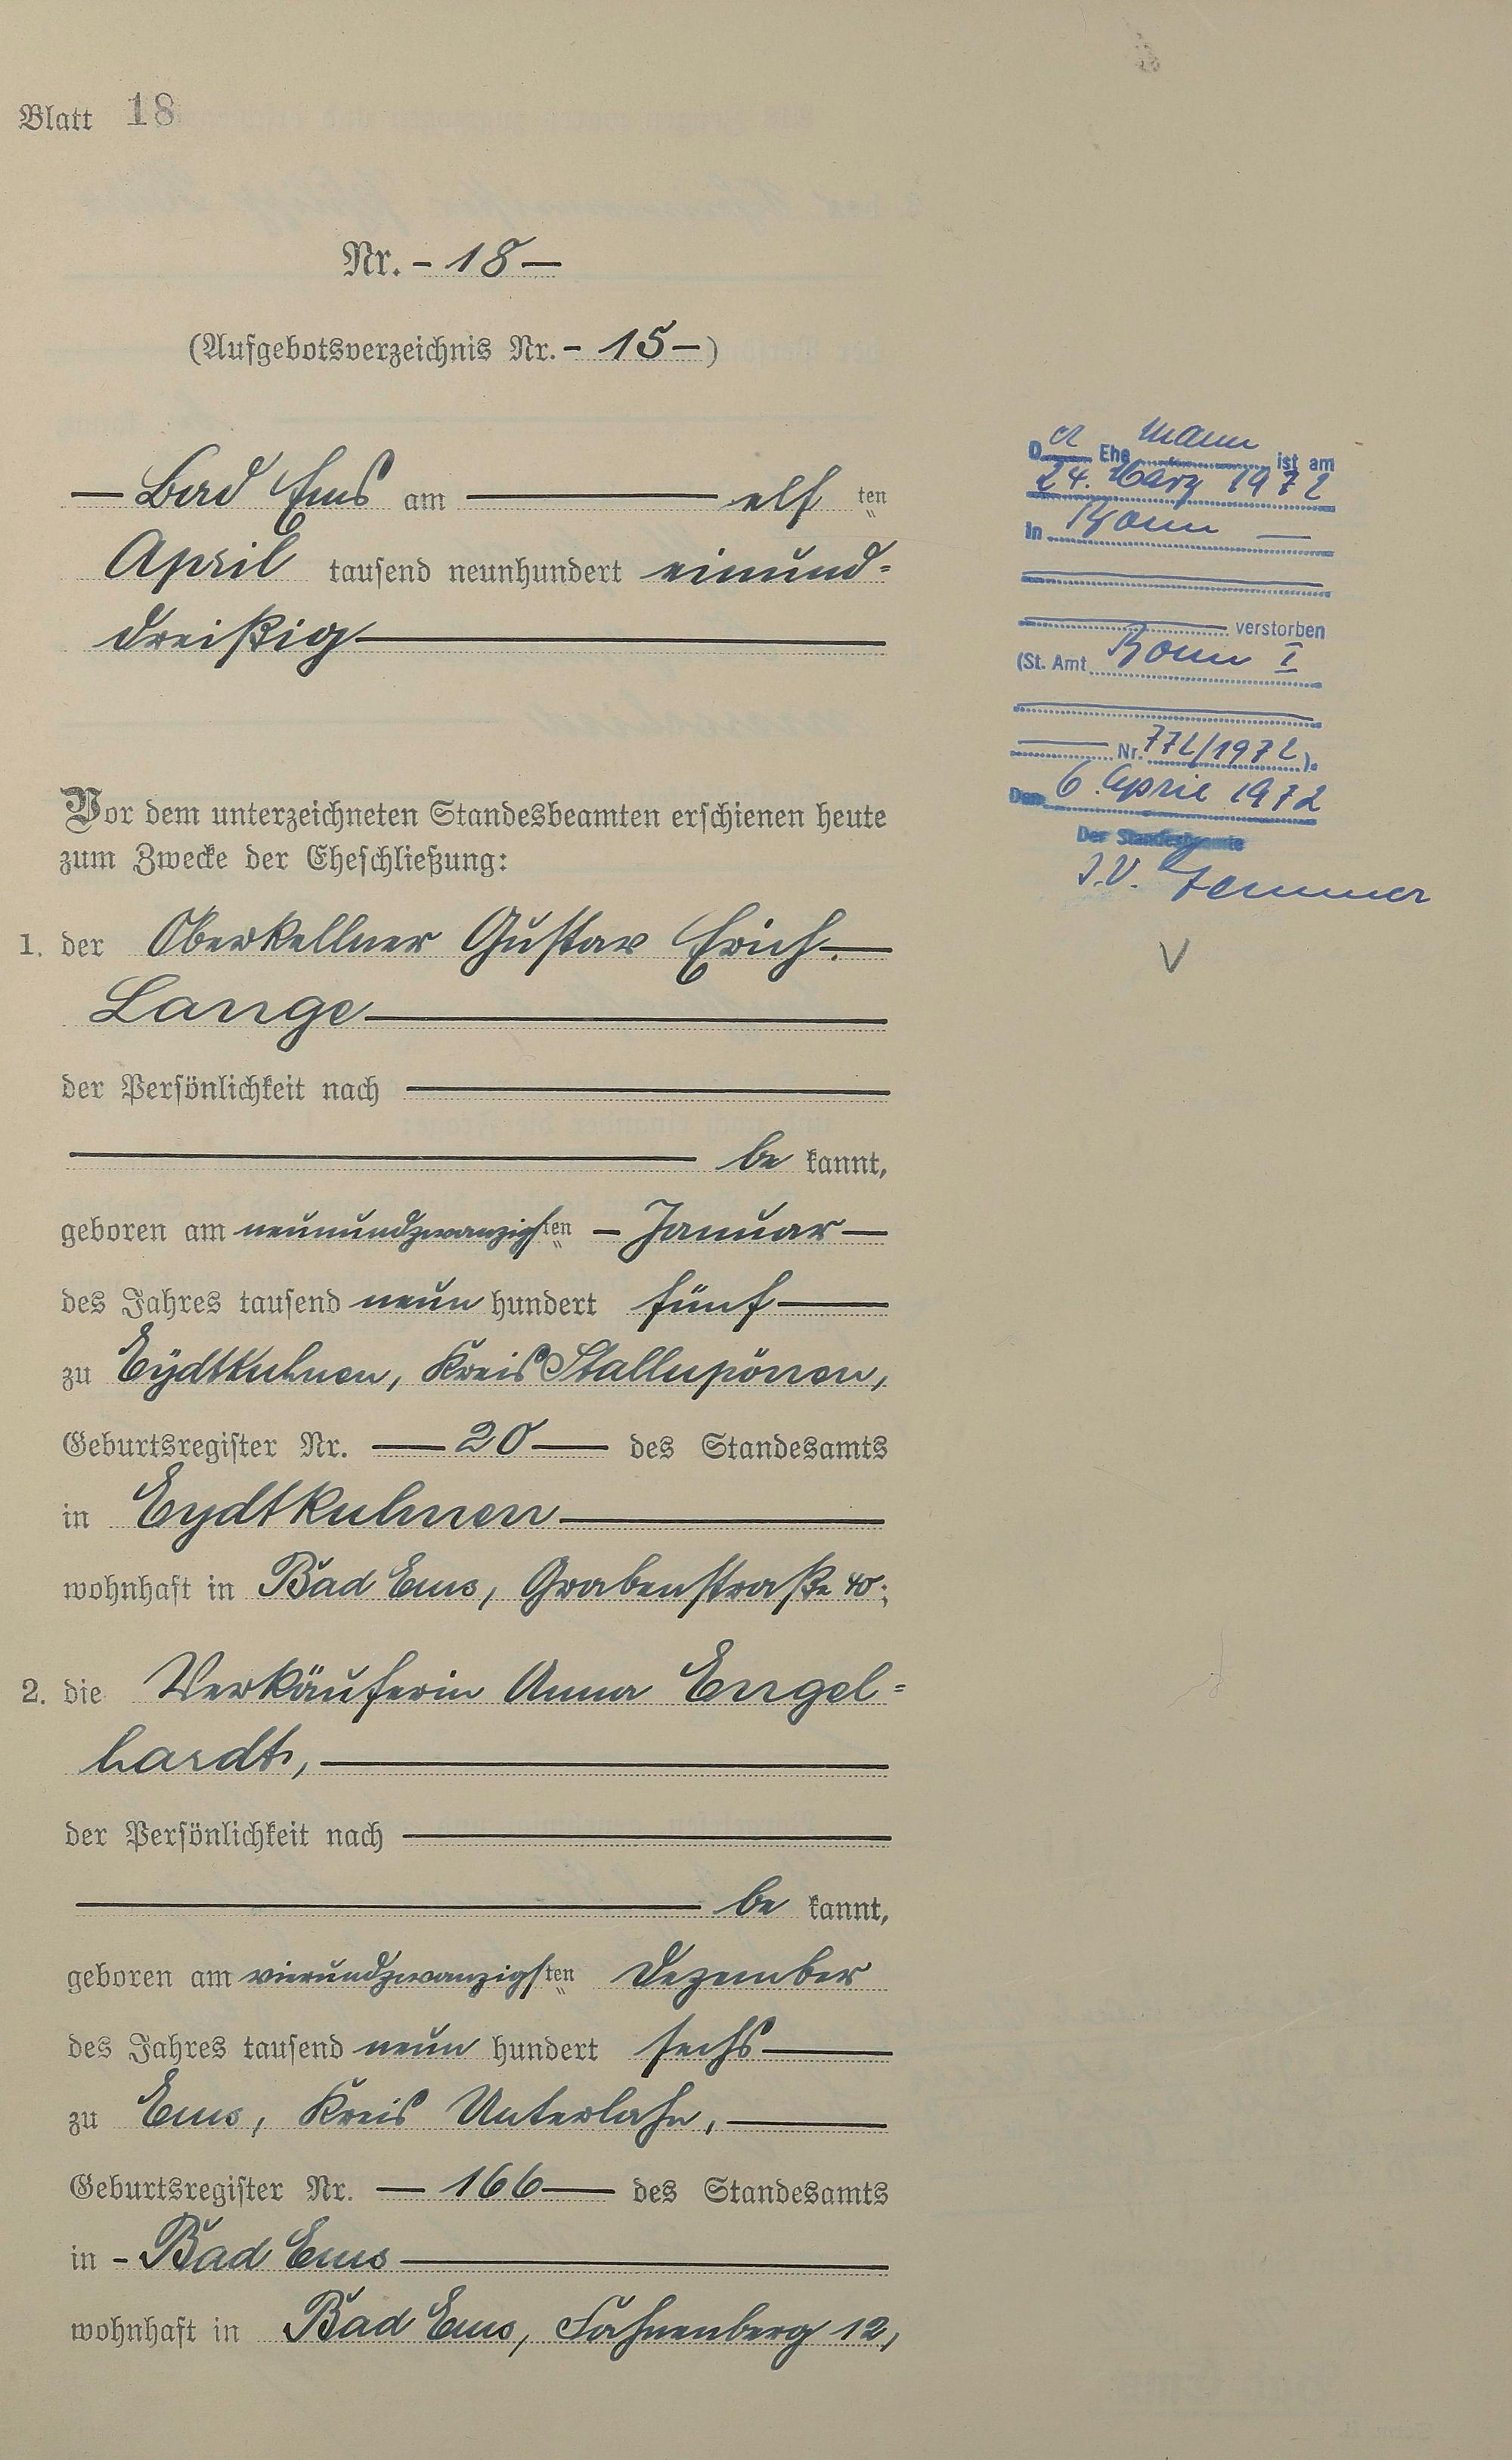 Blatt 18
Nr. - 18 -
(Aufgebotsverzeichnis Nr. - 15 - )
Bad Ems am elf ten
April tausend neunhundert einund=
dreißig
Vor dem unterzeichneten Standesbeamten erschienen heute
zum Zwecke der Eheschließung:
1. der Oberkellner Gustav Erich
Lange
der Persönlichkeit nach
be kannt,
geboren am neunundzwanzigsten - Januar -
des Jahres tausend neun hundert fünf
zu Eydtkuhnen, Kreis Stallupönen,
Geburtsregister Nr. 20 des Standesamts
in Eydtkuhnen
wohnhaft in Bad Ems, Grabenstraße 40;
2. die Verkäuferin Anna Engel=
hardt,
der Persönlichkeit nach
be kannt,
geboren am vierundzwanzigsten Dezember
des Jahres tausend neun hundert sechs
zu Ems, Kreis Unterlahn,
Geburtsregister Nr. 166 des Standesamts
in - Bad Ems
wohnhaft in Bad Ems, Fahnenberg 12,
D er Ehe mann ist am
24. März 1972
in Bonn
verstorben
(St. Amt Bonn I
Nr. 772/1972).
Den 6. April 1972
Der Standesbeamte
I.V.